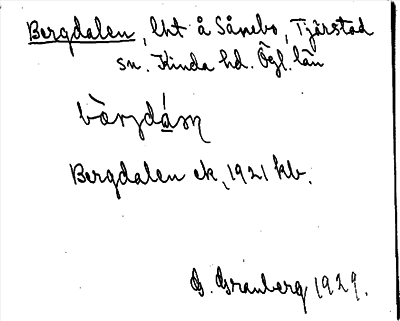 Bergdalen, lht å Sånebo, Tjärstad
sn. Kinda hd. Ögl. län
Bergdalen ek, 1921 kb.
G. Granberg 1929.